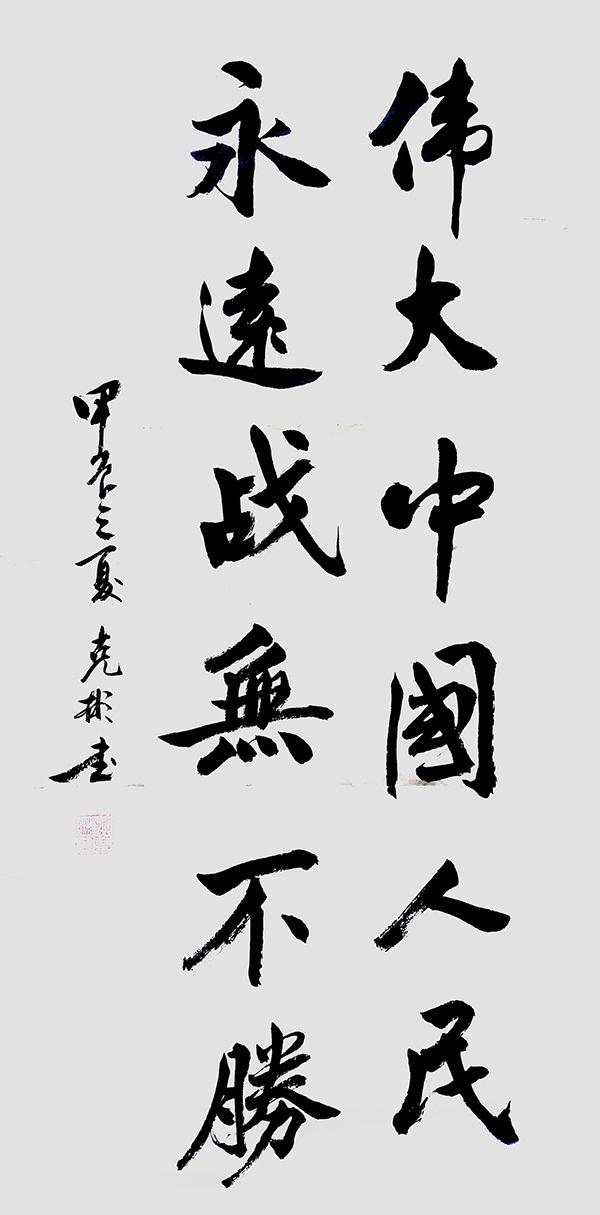 伟大中國人民
永遠战無不勝
甲辰之夏 克彬书